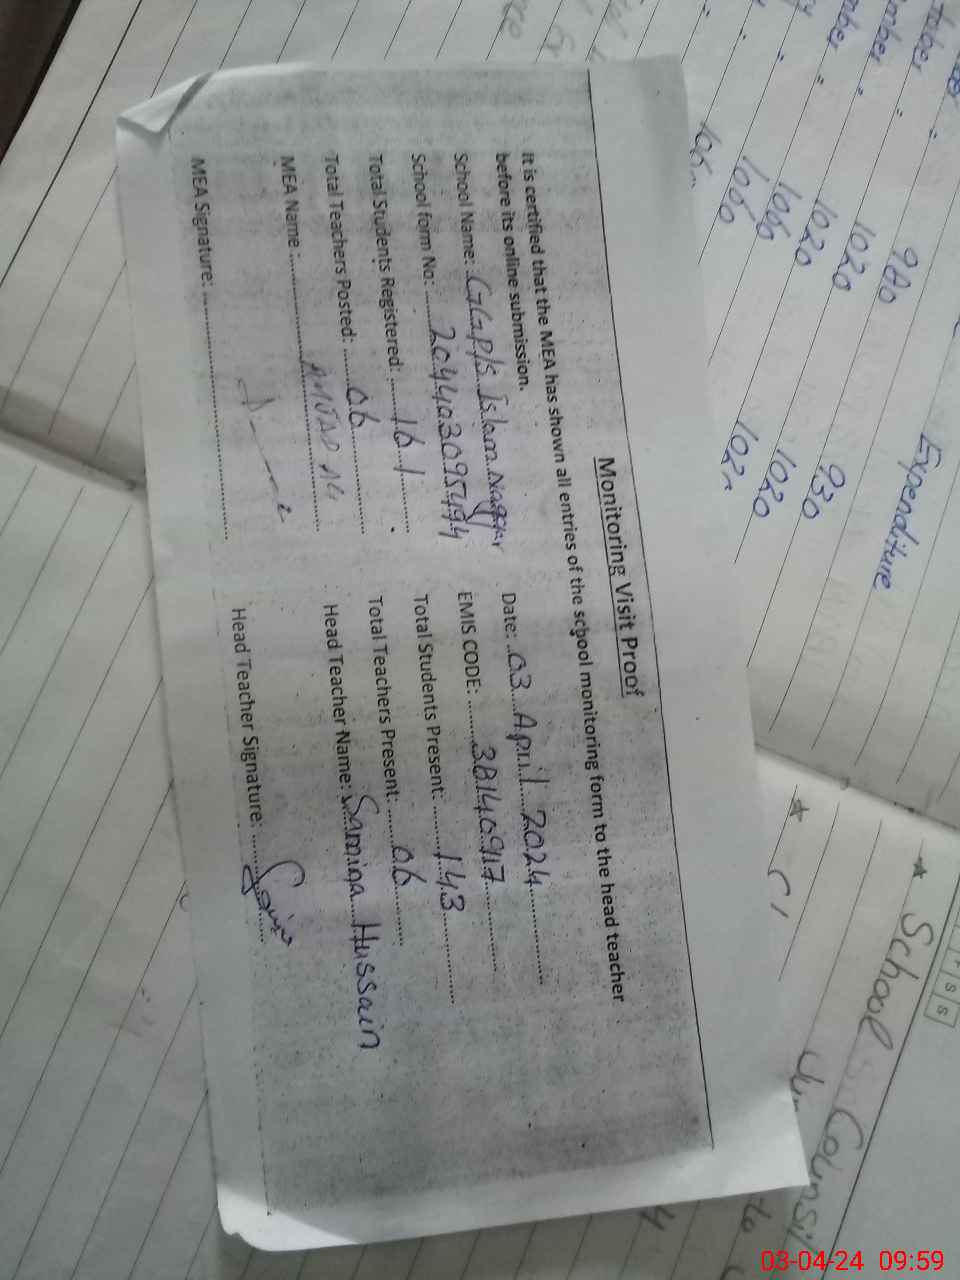 Monitoring Visit Proof
It is certified that the MEA has shown all entries of the school monitoring form to the head teacher
before its online submission.
Date: 03 April 2024
School Name: GGP/S Islam Nagar
EMIS CODE: 38140917
School form No: 204403095494
Total Students Present: 143
Total Students Registered: 161
Total Teachers Present: 06
Total Teachers Posted: 06
Head Teacher Name: Samiqa Hussain
MEA Name:
Head Teacher Signature:
MEA Signature:
Expenditure
960
1020
1020
1060
1060
930
1020
★ School Counsil
03-04-24 09:59